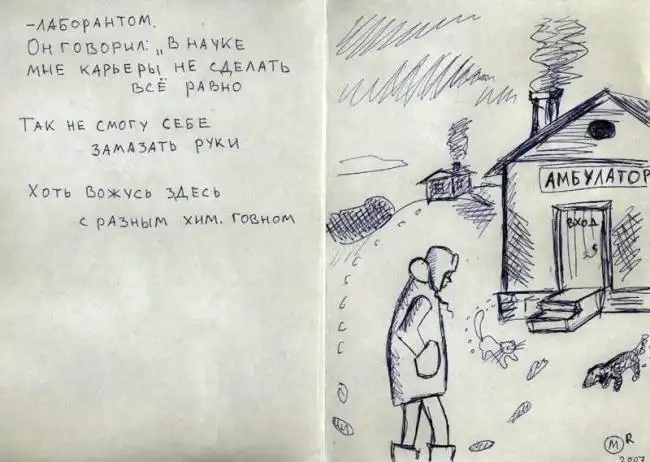 -ЛАБОРАНТОМ.
ОН ГОВОРИЛ: „В НАУКЕ
МНЕ КАРЬЕРЫ НЕ СДЕЛАТЬ
ВСЁ РАВНО
ТАК НЕ СМОГУ СЕБЕ
ЗАМАЗАТЬ РУКИ
ХОТЬ ВОЖУСЬ ЗДЕСЬ
С РАЗНЫМ ХИМ. ГОВНОМ
АМБУЛАТОР
ВХОД
M R
2007